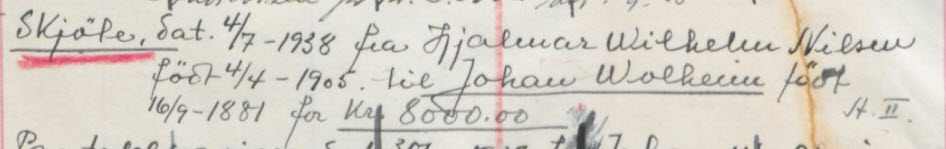 Skjöte, dat. 4/7-1938 fra Hjalmar Wilhelm Nilsen
födt 4/4-1905. til Johan Wolheim födt
16/9-1881 for Kr. 8000.00 H. II.